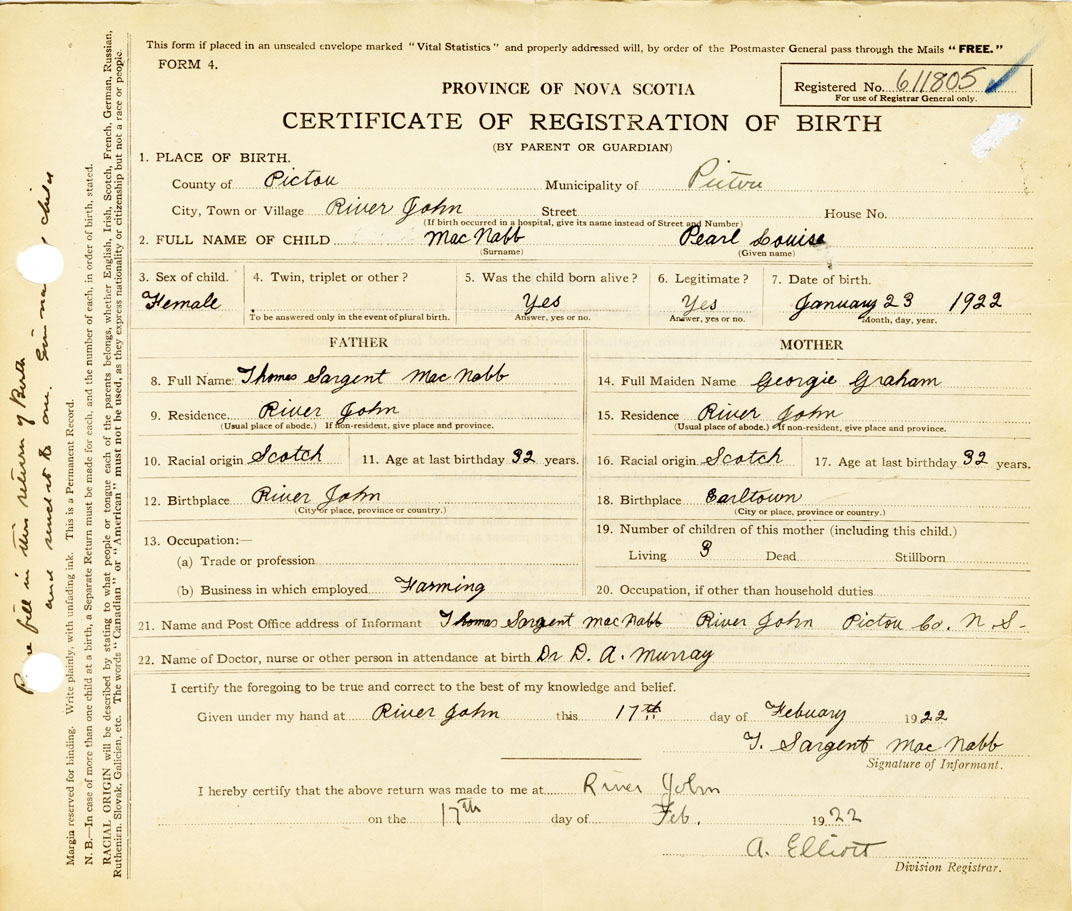 This form if placed in an unsealed envelope marked "Vital Statistics" and properly addressed will, by order of the Postmaster General pass through the Mails "FREE."
FORM 4.
Registered No. 611805
For use of Registrar General only.
PROVINCE OF NOVA SCOTIA
CERTIFICATE OF REGISTRATION OF BIRTH
(BY PARENT OR GUARDIAN)
1. PLACE OF BIRTH.
County of Pictou Municipality of Pictou
City, Town or Village River John Street House No.
(If birth occurred in a hospital, give its name instead of Street and Number)
2. FULL NAME OF CHILD Mac Nabb Pearl Louise
(Surname) (Given name)
3. Sex of child. 4. Twin, triplet or other? 5. Was the child born alive? 6. Legitimate? 7. Date of birth.
Female Yes Yes January 23 1922
To be answered only in the event of plural birth. Answer, yes or no. Answer, yes or no. Month, day, year.
FATHER MOTHER
8. Full Name: Thomas Sargent Mac Nabb 14. Full Maiden Name Georgie Graham
9. Residence River John 15. Residence River John
(Usual place of abode.) If non-resident, give place and province. (Usual place of abode.) If non-resident, give place and province.
10. Racial origin Scotch 11. Age at last birthday 32 years. 16. Racial origin Scotch 17. Age at last birthday 32 years.
12. Birthplace River John 18. Birthplace Earltown
(City or place, province or country.) (City or place, province or country.)
13. Occupation:— 19. Number of children of this mother (including this child.)
(a) Trade or profession Living 3 Dead Stillborn
(b) Business in which employed Farming 20. Occupation, if other than household duties
21. Name and Post Office address of Informant Thomas Sargent Mac Nabb River John Pictou Co. N. S.
22. Name of Doctor, nurse or other person in attendance at birth Dr D. A. Murray
I certify the foregoing to be true and correct to the best of my knowledge and belief.
Given under my hand at River John this 17th day of Febuary 1922
T. Sargent Mac Nabb
Signature of Informant.
I hereby certify that the above return was made to me at River John
on the 17th day of Feb. 1922
A. Elliott
Division Registrar.
fill in this return of Birth
and send it to me. child
Margin reserved for binding. Write plainly, with unfading ink. This is a Permanent Record.
N. B.—In case of more than one child at a birth, a Separate Return must be made for each, and the number of each, in order of birth, stated.
RACIAL ORIGIN will be described by stating to what people or tongue each of the parents belongs, whether English, Irish, Scotch, French, German, Russian,
Ruthenian, Slovak, Galician, etc. The words "Canadian" or "American" must not be used, as they express nationality or citizenship but not a race or people.